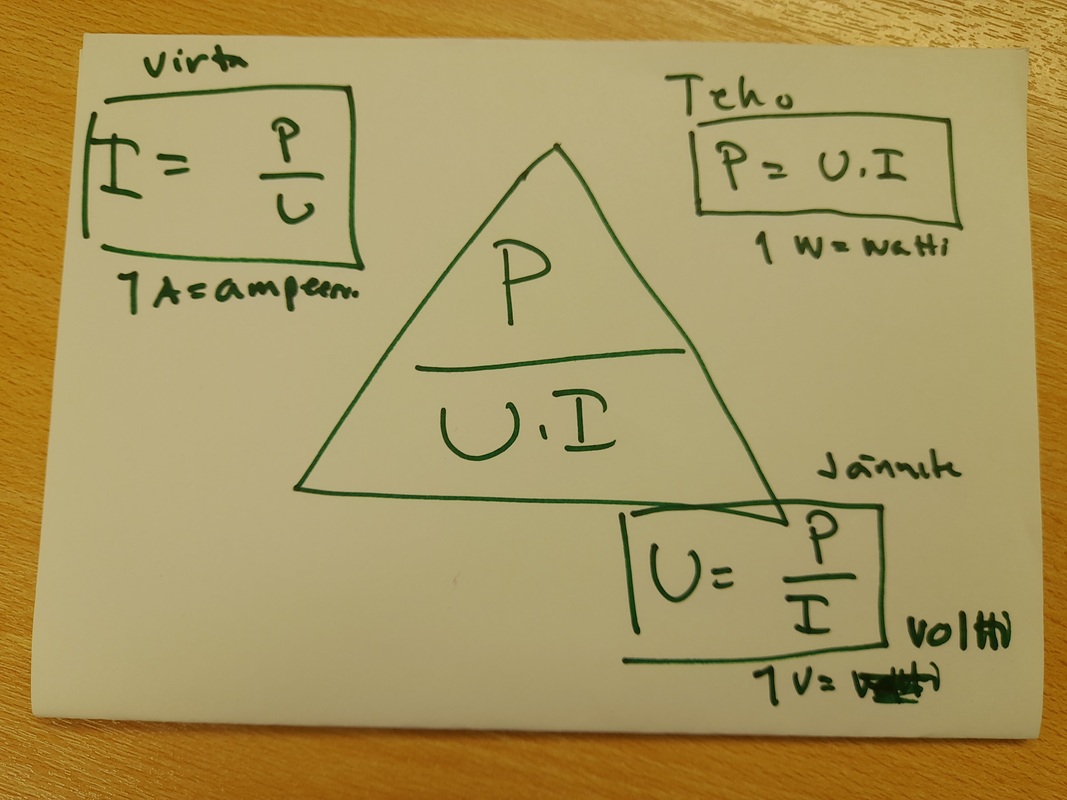 Virta
I = P/U
1 A = ampeeri
Teho
P = U · I
1 W = watti
P
U · I
Jännite
U = P/I
voltti
1 V =